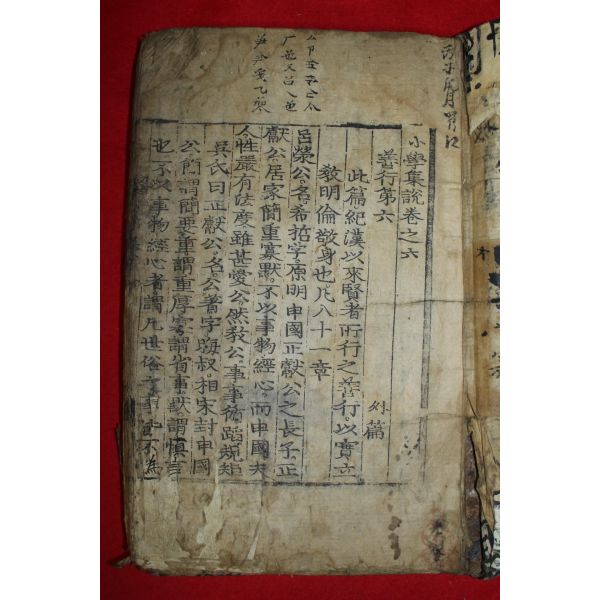 小學集說卷之六
善行第六 外篇
此篇紀漢以來賢者所行之善行以實立
敎明倫敬身也凡八十一章
呂滎公名希哲字原明申國正獻公之長子正
獻公居家簡重寡默不以事物經心而申國夫
人性嚴有法度雖甚愛公然敎公事事循蹈規矩
吳氏曰正獻公名公著字晦叔相宋封申國
公簡謂簡要重謂重厚寡謂省事默謂慎言
也不以事物經心者謂凡世俗之事皆不為